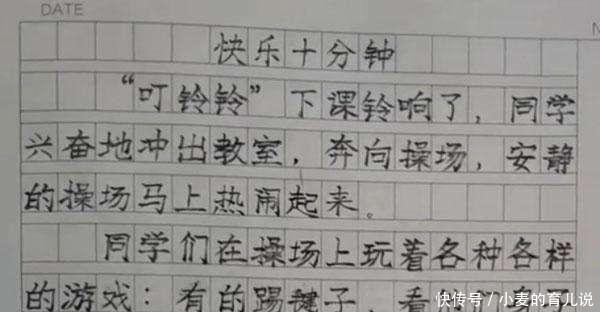 DATE
快乐十分钟
“叮铃铃”下课铃响了，同学
兴奋地冲出教室，奔向操场，安静
的操场马上热闹起来。
同学们在操场上玩着各种各样
的游戏：有的踢毽子，看
快传号／小麦的育儿说